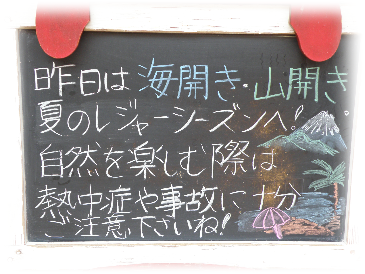 昨日は 海開き・山開き
夏のレジャーシーズンへ!
自然を楽しむ際は
熱中症や事故に十分
ご注意下さいね!